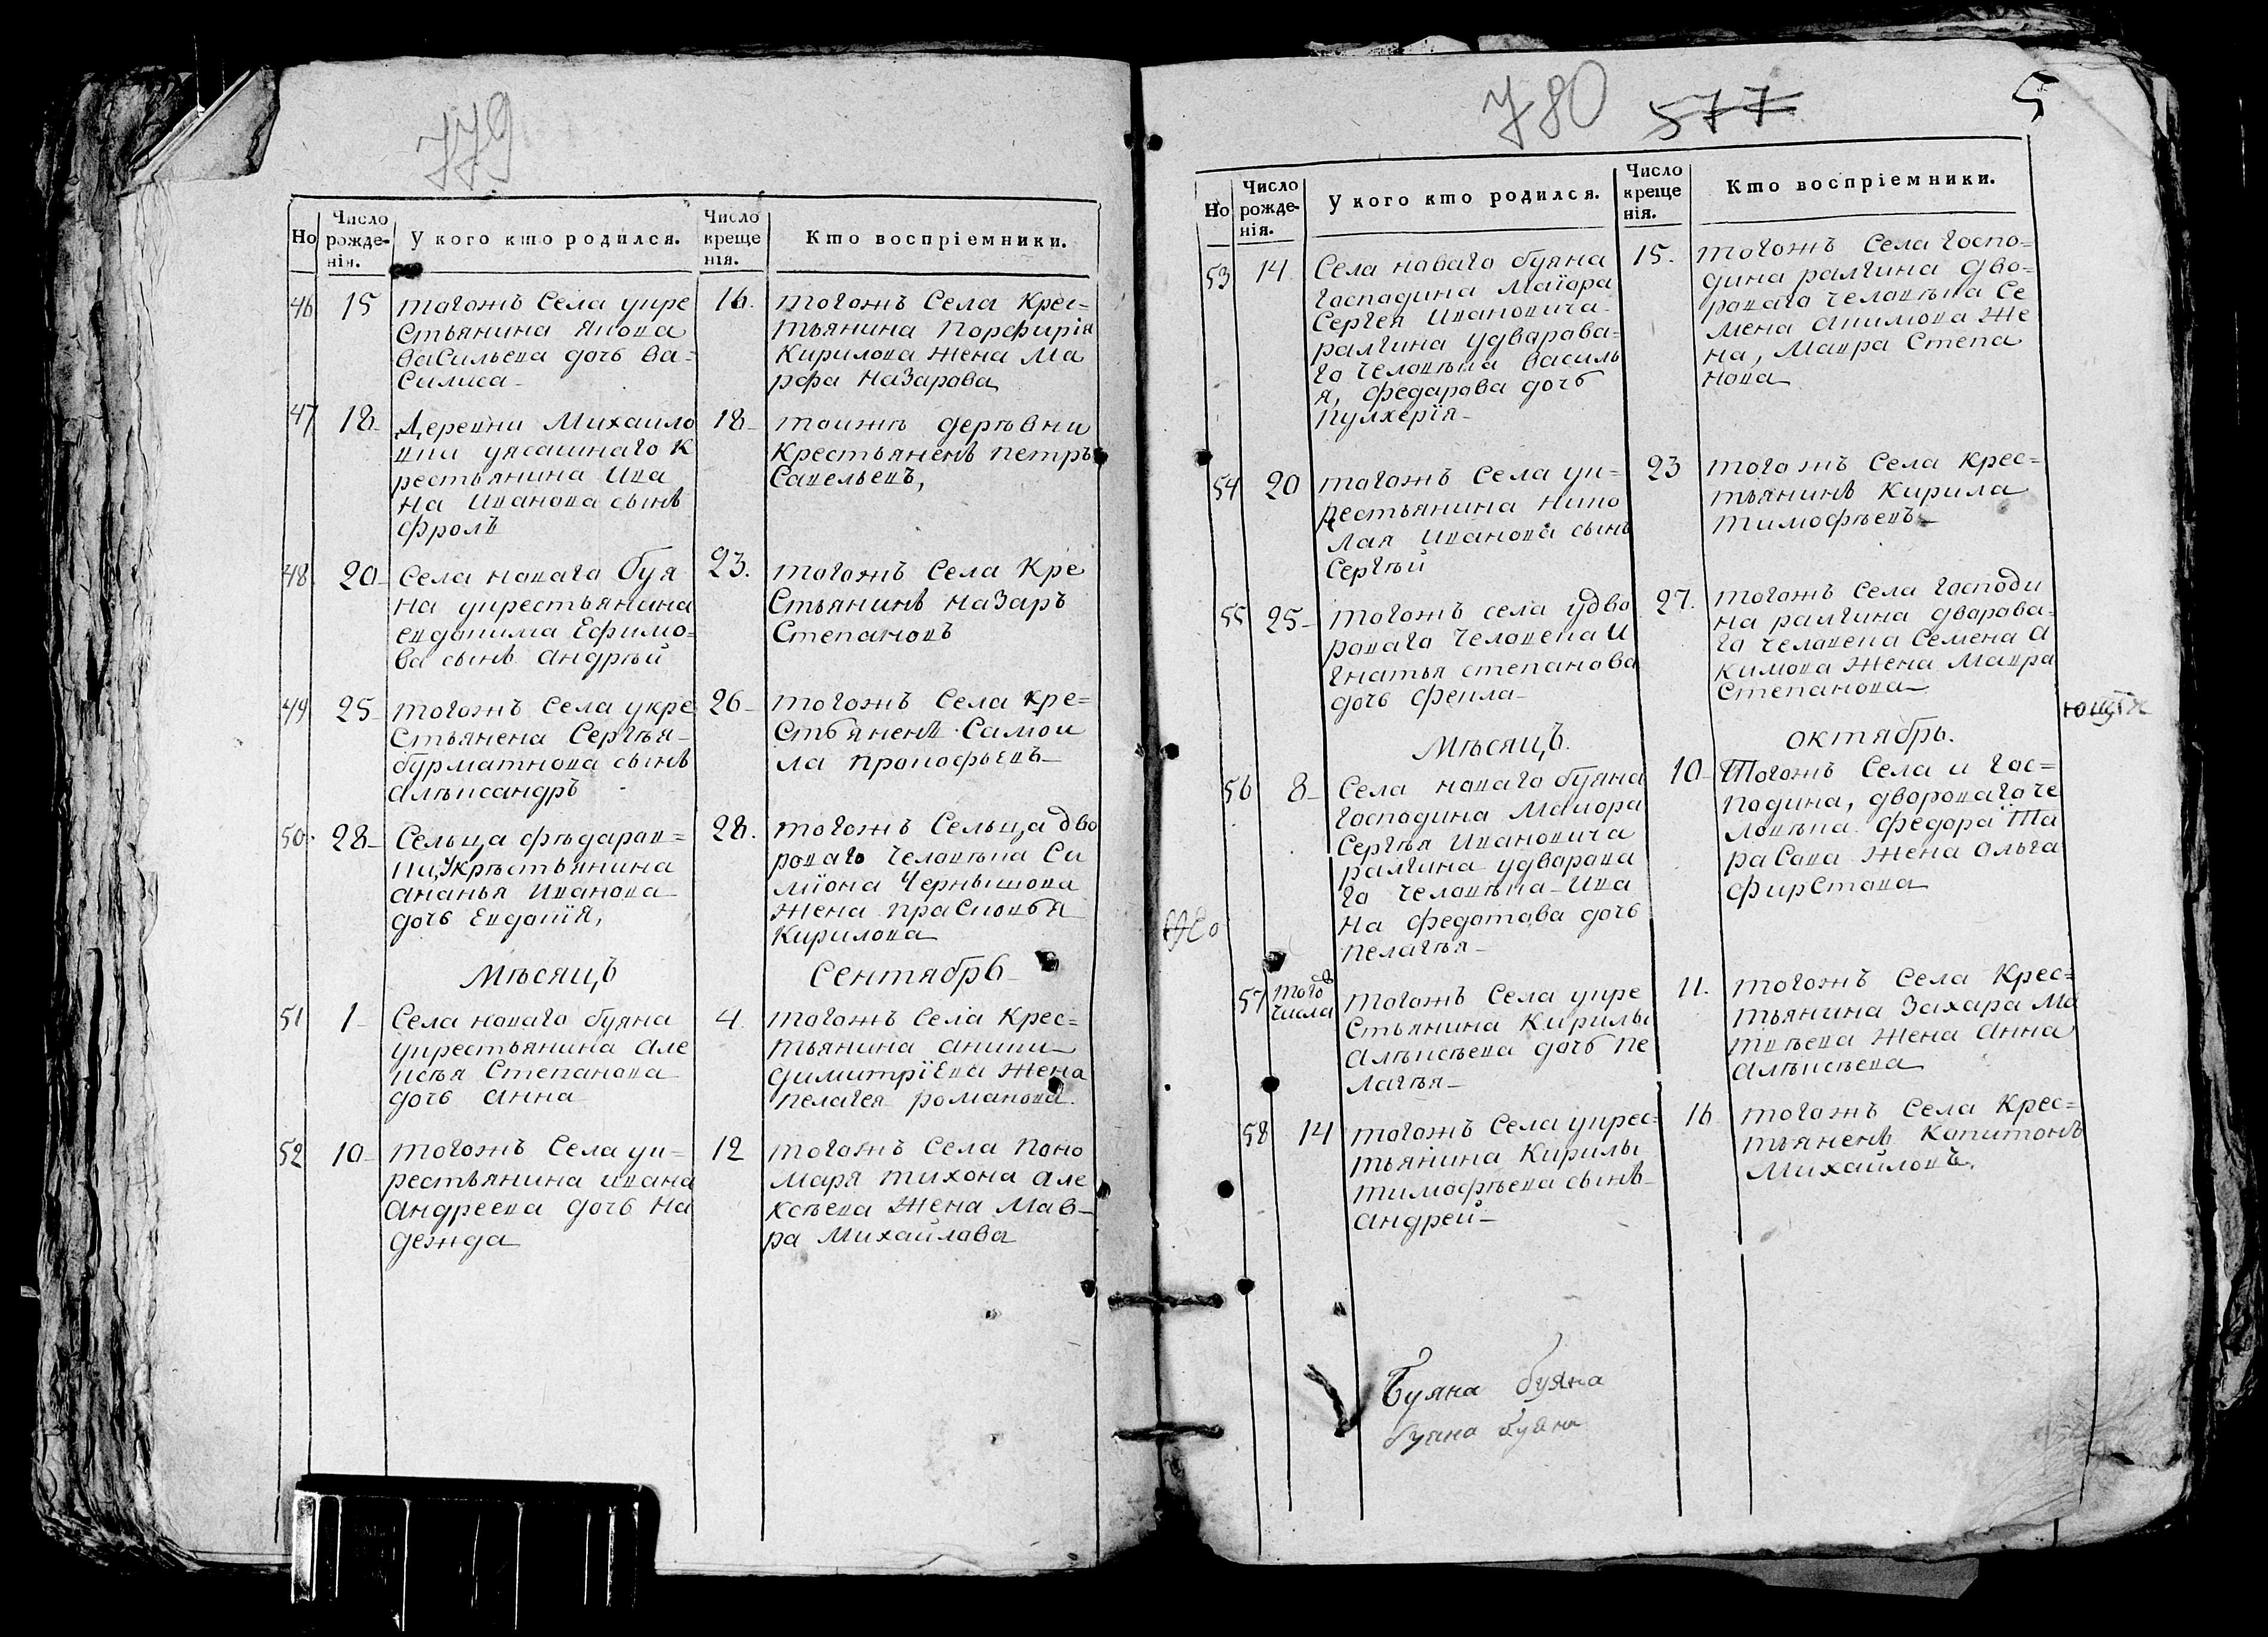 779
Но
Число рожденія.
У кого кто родился.
Число крещенія.
Кто воспріемники.
46 15 тогожъ Села укре
стьянина якова
васильева дочь ва=
силиса
16. тогожъ Села Крес=
тьянина Порфирія
Кирилова Жена Ма
рфа Назарова
47 18 Деревни Михаило
вки уясашнаго К
рестьянина Ива
на Иванова сынъ
фролъ
18 тоижъ дерѣвни
Крестьяненъ петръ
Савельевъ,
48. 20 Села новаго буя
на укрестьянина
евдокима Ефимо=
ва сынъ андрѣй
23. тогожъ Села Кре
стьянинъ назаръ
Степановъ
49 25 тогожъ Села укре
стьянена Сергѣя
бурматнова сынъ
алѣксандръ
26 тогожъ Села кре=
стьяненъ Самои
ла прокофьевъ
50. 28 Сельца фѣдаров=
ки, укрѣстьянина
ананья Иванова
дочь Евдокїя,
28. тогожъ Сельца дво
роваго человѣка Си
мїона Чернышова
жена прасковья
Кирилова
Мѣсяцъ Сентябрь
51 1 Села новаго буяна
укрестьянина але
ксѣя Степанова
дочь анна
4 тогожъ Села Крес=
тьянина аники
димитрїева жена
пелагея романова.
52 10 тогожъ Села ук=
рестьянина ивана
андреева дочь на
дежда
12 тогожъ Села поно
маря тихона але
ксѣева жена Мав=
ра Михайлова
780 577 5
Но
Число рожденія.
У кого кто родился.
Число крещенія.
Кто воспріемники.
53 14 Села новаго буяна
господина Маїора
Сергея Ивановича
ралгина удворова=
го человѣка василь
я, федарова дочь
пулхерїя
15. тогожъ Села госпо=
дина ралгина дво=
роваго человѣка Се
мена акимова же
на, Мавра Степа
нова
54 20 тогожъ Села ук=
рестьянина нико
лая иванова сынъ
Сергѣй
23 тогожъ Села крес=
тьянинъ Кирила
тимофѣевъ
55 25 тогожъ села удво
роваго человека И
гнатья степанова
дочь фекла
27. тогожъ Села господи
на ралгина дварава=
го человека Семена а
кимова жена Мавра
Степанова
ющія
Мѣсяцъ. октябрь.
56 8 Села новаго буяна
господина Маиора
Сергѣя Ивановича
ралгина удварава
го человѣка Ива
на федотова дочь
пелагѣя
10 Тогожъ Села и гос=
подина, двороваго че
ловѣка федора Та
расова жена ольга
фирстова
57 того числа
тогожъ Села укре
стьянина Кирилы
алѣксѣева дочь пе
лагѣя
11. тогожъ Села Крес=
тьянина Захара Ма
твѣева жена анна
алѣксѣева
58 14 тогожъ Села укрес=
тьянина Кирилы
тимофѣева сынъ
андрей
16 тогожъ Села Крес=
тьяненъ Капитонъ
Михайловъ.
Буяна буяна
буяна буяна